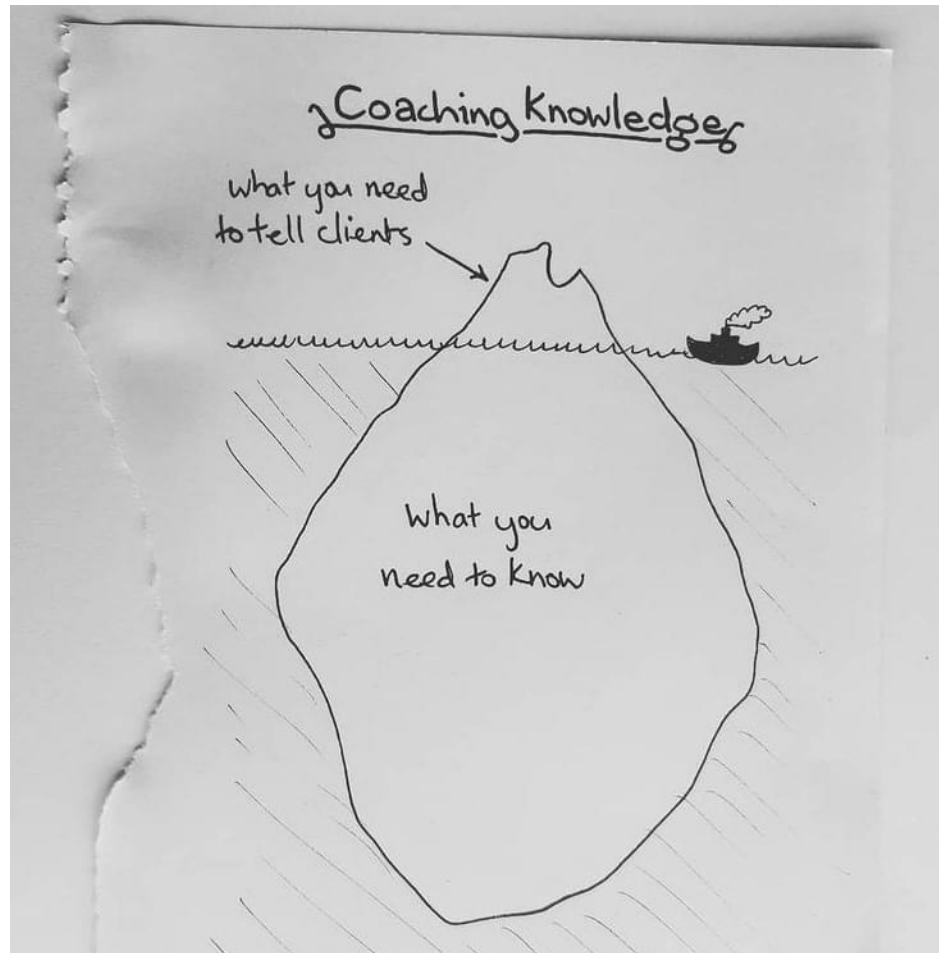 Coaching Knowledge
what you need
to tell clients
what you
need to know